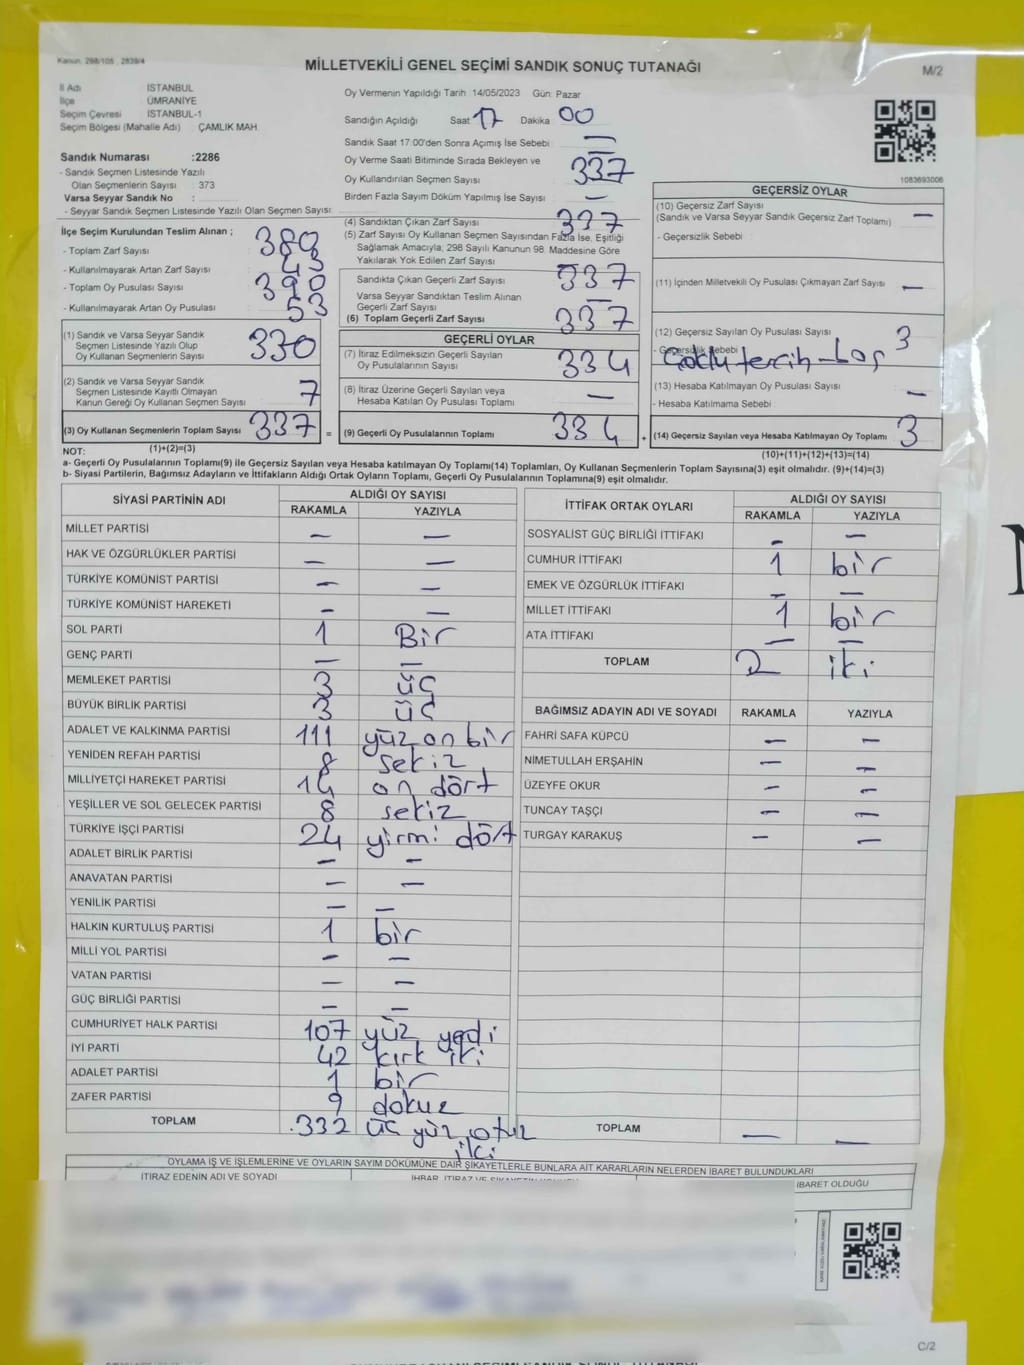 Kanun. 298/105 , 2839/4
MİLLETVEKİLİ GENEL SEÇİMİ SANDIK SONUÇ TUTANAĞI
M/2
İl Adı İSTANBUL
İlçe ÜMRANİYE
Seçim Çevresi İSTANBUL-1
Seçim Bölgesi (Mahalle Adı) : ÇAMLIK MAH.
Sandık Numarası :2286
- Sandık Seçmen Listesinde Yazılı
Olan Seçmenlerin Sayısı : 373
Varsa Seyyar Sandık No :
- Seyyar Sandık Seçmen Listesinde Yazılı Olan Seçmen Sayısı:
Oy Vermenin Yapıldığı Tarih: 14/05/2023 Gün: Pazar
Sandığın Açıldığı Saat 17 Dakika 00
Sandık Saat 17:00'den Sonra Açımış İse Sebebi : —
Oy Verme Saati Bitiminde Sırada Bekleyen ve
Oy Kullandırılan Seçmen Sayısı 337
Birden Fazla Sayım Döküm Yapılmış İse Sayısı —
1083693006
İlçe Seçim Kurulundan Teslim Alınan ;
- Toplam Zarf Sayısı 380
- Kullanılmayarak Artan Zarf Sayısı 43
- Toplam Oy Pusulası Sayısı 390
- Kullanılmayarak Artan Oy Pusulası 53
(1) Sandık ve Varsa Seyyar Sandık
Seçmen Listesinde Yazılı Olup
Oy Kullanan Seçmenlerin Sayısı 330
(2) Sandık ve Varsa Seyyar Sandık
Seçmen Listesinde Kayıtlı Olmayan
Kanun Gereği Oy Kullanan Seçmen Sayısı 7
(3) Oy Kullanan Seçmenlerin Toplam Sayısı 337 =
(4) Sandıktan Çıkan Zarf Sayısı 337
(5) Zarf Sayısı Oy Kullanan Seçmen Sayısından Fazla İse, Eşitliği
Sağlamak Amacıyla; 298 Sayılı Kanunun 98. Maddesine Göre
Yakılarak Yok Edilen Zarf Sayısı —
Sandıkta Çıkan Geçerli Zarf Sayısı 337
Varsa Seyyar Sandıktan Teslim Alınan
Geçerli Zarf Sayısı —
(6) Toplam Geçerli Zarf Sayısı 337
GEÇERLİ OYLAR
(7) İtiraz Edilmeksizin Geçerli Sayılan
Oy Pusulalarının Sayısı 334
(8) İtiraz Üzerine Geçerli Sayılan veya
Hesaba Katılan Oy Pusulası Toplamı —
(9) Geçerli Oy Pusulalarının Toplamı 334 +
GEÇERSİZ OYLAR
(10) Geçersiz Zarf Sayısı
(Sandık ve Varsa Seyyar Sandık Geçersiz Zarf Toplamı) —
- Geçersizlik Sebebi :
(11) İçinden Milletvekili Oy Pusulası Çıkmayan Zarf Sayısı —
(12) Geçersiz Sayılan Oy Pusulası Sayısı 3
- Geçersizlik Sebebi Çoklu tercih-boş
(13) Hesaba Katılmayan Oy Pusulası Sayısı —
- Hesaba Katılmama Sebebi :
(14) Geçersiz Sayılan veya Hesaba Katılmayan Oy Toplamı 3
NOT: (1)+(2)=(3)
(10)+(11)+(12)+(13)=(14)
a- Geçerli Oy Pusulalarının Toplamı(9) ile Geçersiz Sayılan veya Hesaba katılmayan Oy Toplamı(14) Toplamları, Oy Kullanan Seçmenlerin Toplam Sayısına(3) eşit olmalıdır. (9)+(14)=(3)
b- Siyasi Partilerin, Bağımsız Adayların ve İttifakların Aldığı Ortak Oyların Toplamı, Geçerli Oy Pusulalarının Toplamına(9) eşit olmalıdır.
SİYASİ PARTİNİN ADI ALDIĞI OY SAYISI
RAKAMLA YAZIYLA
MİLLET PARTİSİ — —
HAK VE ÖZGÜRLÜKLER PARTİSİ — —
TÜRKİYE KOMÜNİST PARTİSİ — —
TÜRKİYE KOMÜNİST HAREKETİ — —
SOL PARTİ 1 Bir
GENÇ PARTİ — —
MEMLEKET PARTİSİ 3 üç
BÜYÜK BİRLİK PARTİSİ 3 üç
ADALET VE KALKINMA PARTİSİ 111 yüz on bir
YENİDEN REFAH PARTİSİ 8 sekiz
MİLLİYETÇİ HAREKET PARTİSİ 14 on dört
YEŞİLLER VE SOL GELECEK PARTİSİ 8 sekiz
TÜRKİYE İŞÇİ PARTİSİ 24 yirmi dört
ADALET BİRLİK PARTİSİ — —
ANAVATAN PARTİSİ — —
YENİLİK PARTİSİ — —
HALKIN KURTULUŞ PARTİSİ 1 bir
MİLLİ YOL PARTİSİ — —
VATAN PARTİSİ — —
GÜÇ BİRLİĞİ PARTİSİ — —
CUMHURİYET HALK PARTİSİ 107 yüz yedi
İYİ PARTİ 42 kırk iki
ADALET PARTİSİ 1 bir
ZAFER PARTİSİ 9 dokuz
TOPLAM 332 üç yüz otuz
iki
İTTİFAK ORTAK OYLARI ALDIĞI OY SAYISI
RAKAMLA YAZIYLA
SOSYALİST GÜÇ BİRLİĞİ İTTİFAKI — —
CUMHUR İTTİFAKI 1 bir
EMEK VE ÖZGÜRLÜK İTTİFAKI — —
MİLLET İTTİFAKI 1 bir
ATA İTTİFAKI — —
TOPLAM 2 iki
BAĞIMSIZ ADAYIN ADI VE SOYADI RAKAMLA YAZIYLA
FAHRİ SAFA KÜPCÜ — —
NİMETULLAH ERŞAHİN — —
ÜZEYFE OKUR — —
TUNCAY TAŞÇI — —
TURGAY KARAKUŞ — —
TOPLAM — —
OYLAMA İŞ VE İŞLEMLERİNE VE OYLARIN SAYIM DÖKÜMÜNE DAİR ŞİKAYETLERLE BUNLARA AİT KARARLARIN NELERDEN İBARET BULUNDUKLARI
İTİRAZ EDENİN ADI VE SOYADI
İBARET OLDUĞU
C/2